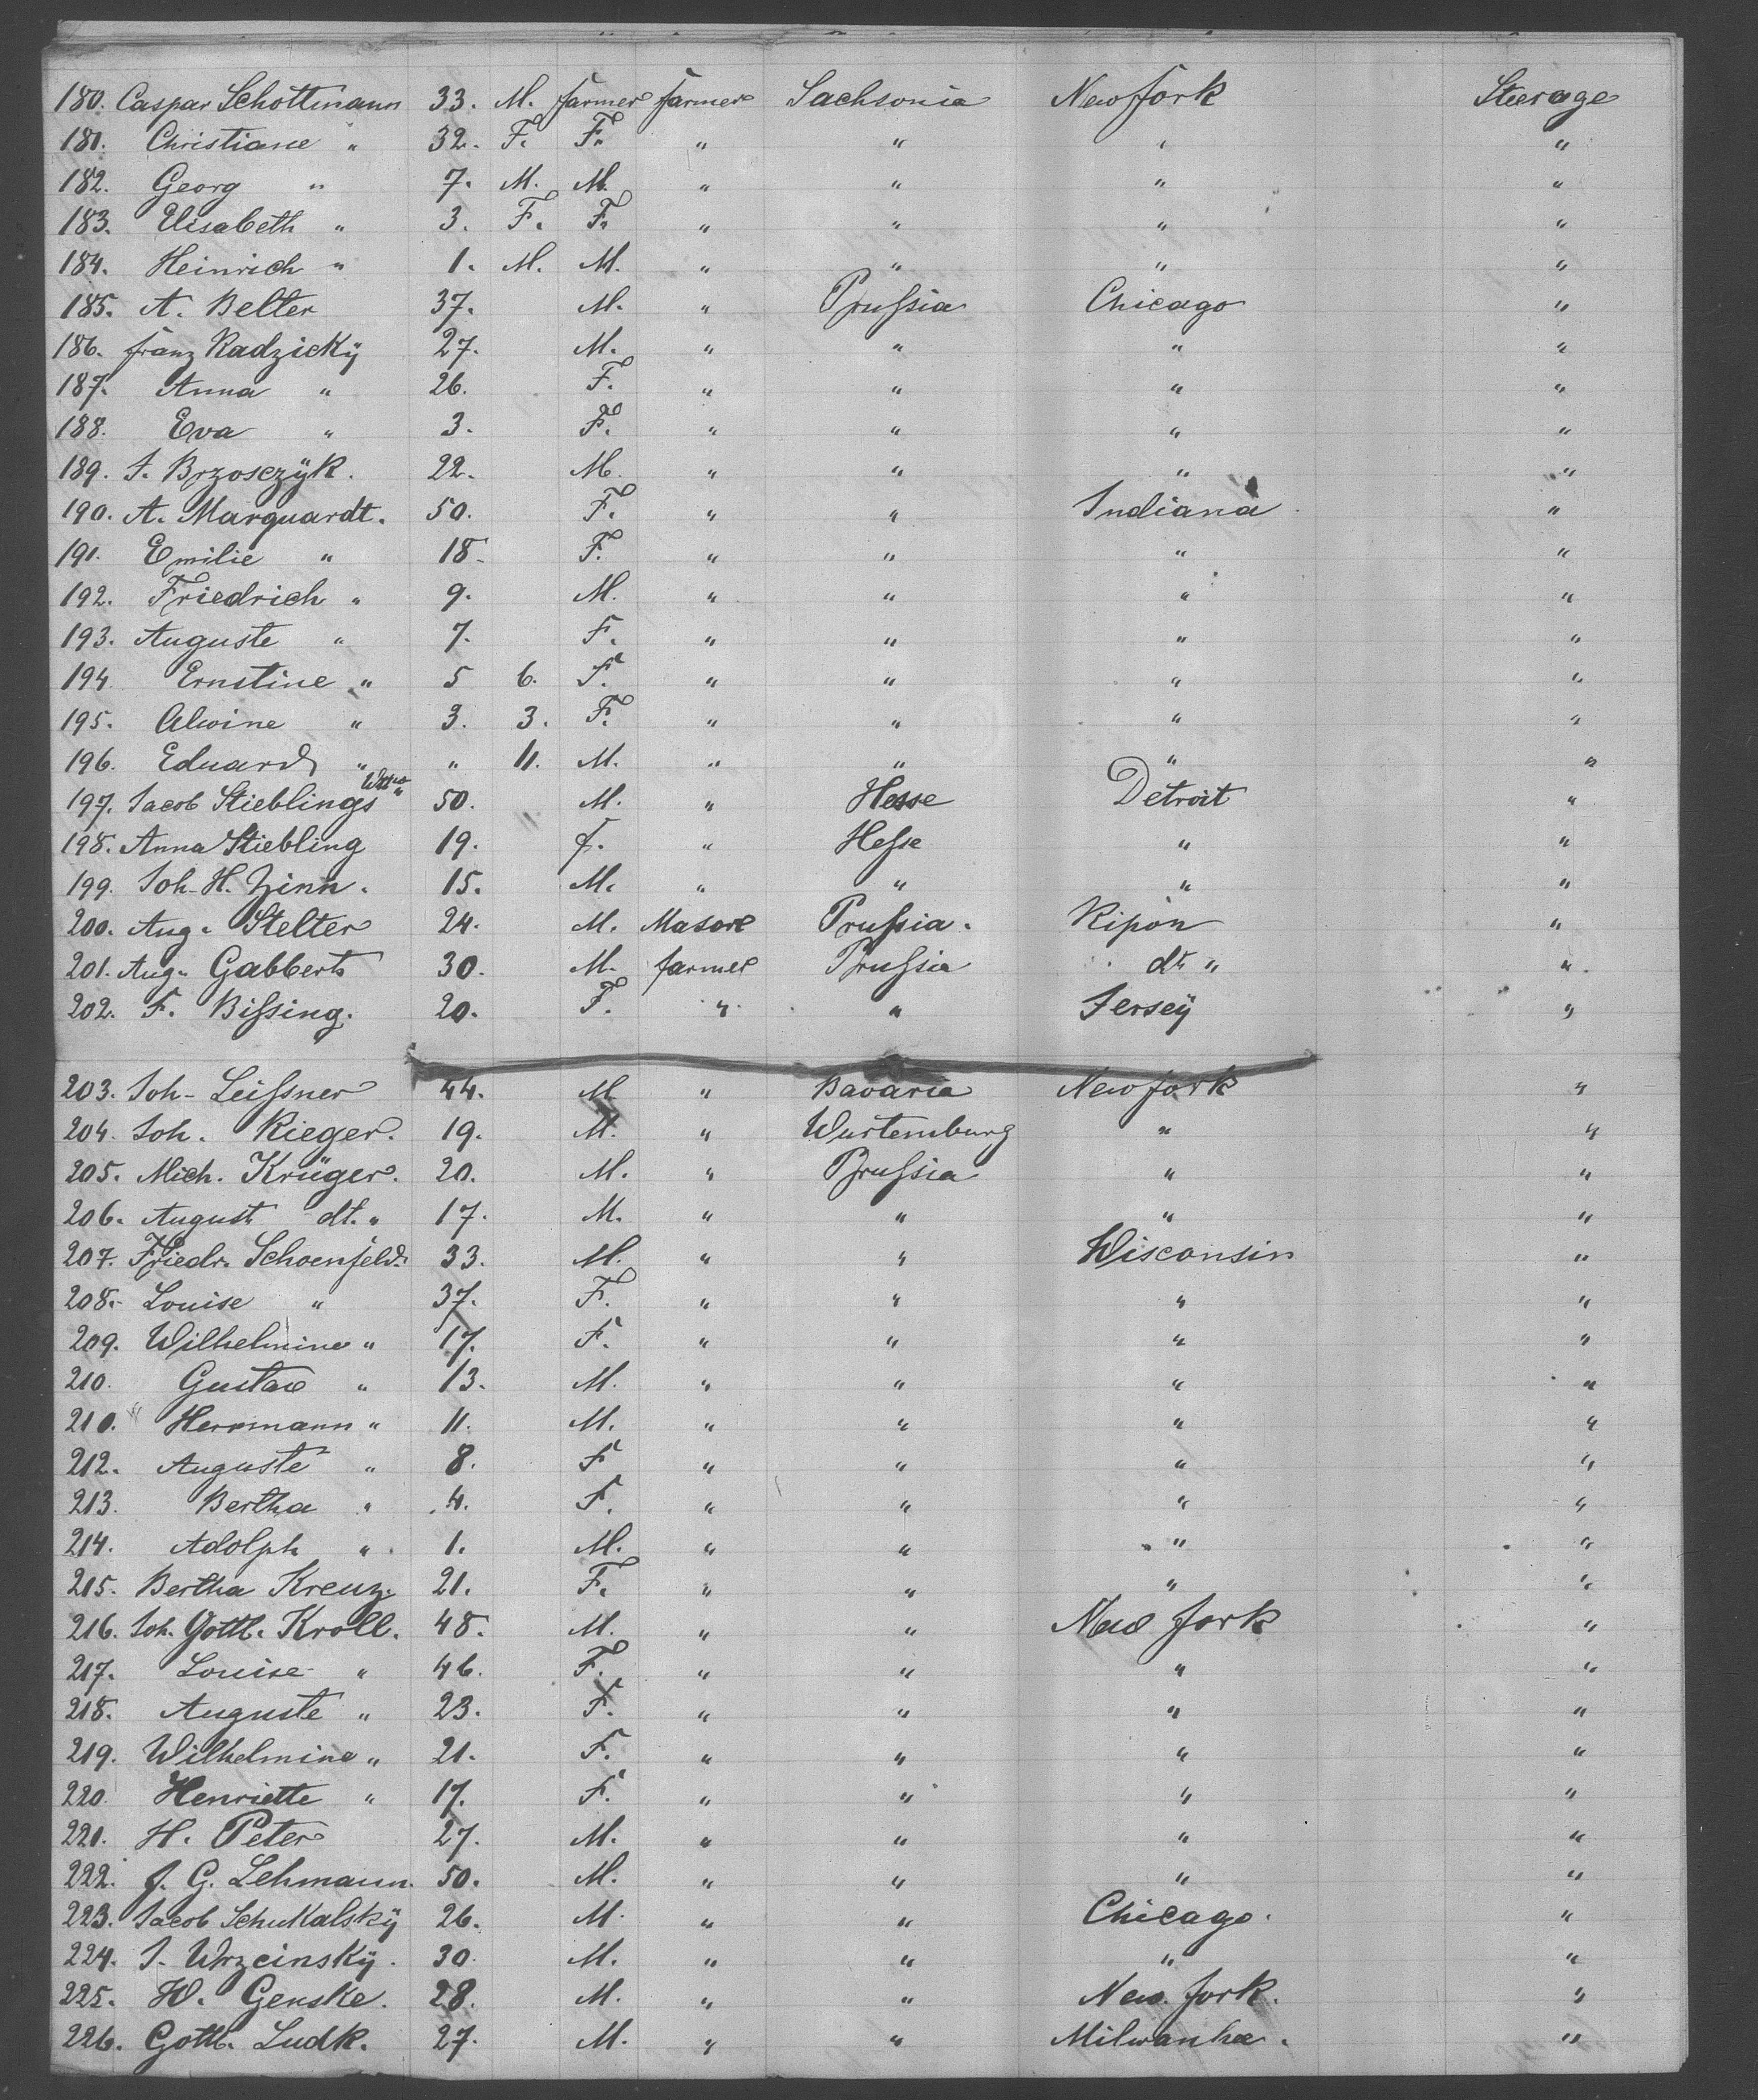 180. Caspar Schottmann 33. M. farmer farmer Sachsonia New York Steerage
181. Christiane " 32. F. F. " " " "
182. Georg " 7. M. M. " " " "
183. Elisabeth " 3. F. F. " " " "
184. Heinrich " 1. M. M. " " " "
185. A. Belter 37. M. " Prußia Chicago "
186. Franz Radzicky 27. M. " " " "
187. Anna " 26. F. " " " "
188. Eva " 3. F. " " " "
189. J. Brzosczÿk. 22. M. " " " "
190. A. Marquardt. 50. F. " " Indiana "
191. Emilie " 18. F. " " " "
192. Friedrich " 9. M. " " " "
193. Auguste " 7. F. " " " "
194 Ernstine " 5 6. F. " " " "
195. Alwine " 3. 3. F. " " " "
196. Eduard " " 11. M. " " " "
197. Jacob Stieblings 50. M. " Hesse Detroit "
198. Anna Stiebling 19. f. " Heße " "
199. Joh. H. Zinn. 15. M. " " " "
200. Aug. Stelter 24. M. Masore Prußia. Ripon "
201. Aug. Gabbert 30. M. farmer Prußia dt " "
202. F. Bißing. 20. F. " " Jersey "
203. Joh. Leißner 44. M " Bavaria New York "
204. Joh. Rieger. 19. M. " Wurtemburg " "
205. Mich. Krüger. 20. M. " Prußia " "
206. August dt. " 17. M. " " " "
207. Friedr. Schoenfeld. 33. M. " " Wisconsin "
208. Louise " 37. F. " " " "
209. Wilhelmine " 17. F. " " " "
210. Gustav " 13. M. " " " "
210. Herrmann " 11. M. " " " "
212. Auguste " 8. F " " " "
213. Bertha " 4. F. " " " "
214. Adolph " 1. M. " " " "
215. Bertha Kreuz. 21. F. " " " "
216. Joh. Gottl. Kroll. 48. M. " " New York "
217. Louise " 46. F. " " " "
218. Auguste " 23. F. " " " "
219. Wilhelmine " 21. F. " " " "
220. Henriette " 17. F. " " " "
221. H. Peter 27. M. " " " "
222. J. G. Lehmann. 50. M. " " " "
223. Jacob Schukalskÿ 26. M. " " Chicago. "
224. J. Wrzcinskÿ. 30. M. " " " "
225. W. Genske. 28. M. " " New York. "
226. Gottl. Ludk. 27. M. " " Milwankee. "